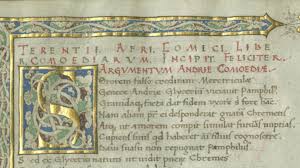 TERENTII AFRI COMICI LIBER
COMOEDIARUM INCIPIT FELICITER
ARGVMENTVM ANDRIE COMOEDIAE
SOrorem falso creditam Meretriculae
Genere Andriae Glycerii viciavit Pamphil
Gravidaq facta dat fidem uxore si fore hac
Nam aliam pr ei desponderat gnatam Chremetis
Atq ut amorem comperit simulat futuras nuptias
Cupiens suus quid haberet animi filius cognoscere
suasu non repugnat Pamphilus
Sed ex Glycerio natum ut vidit Chremes